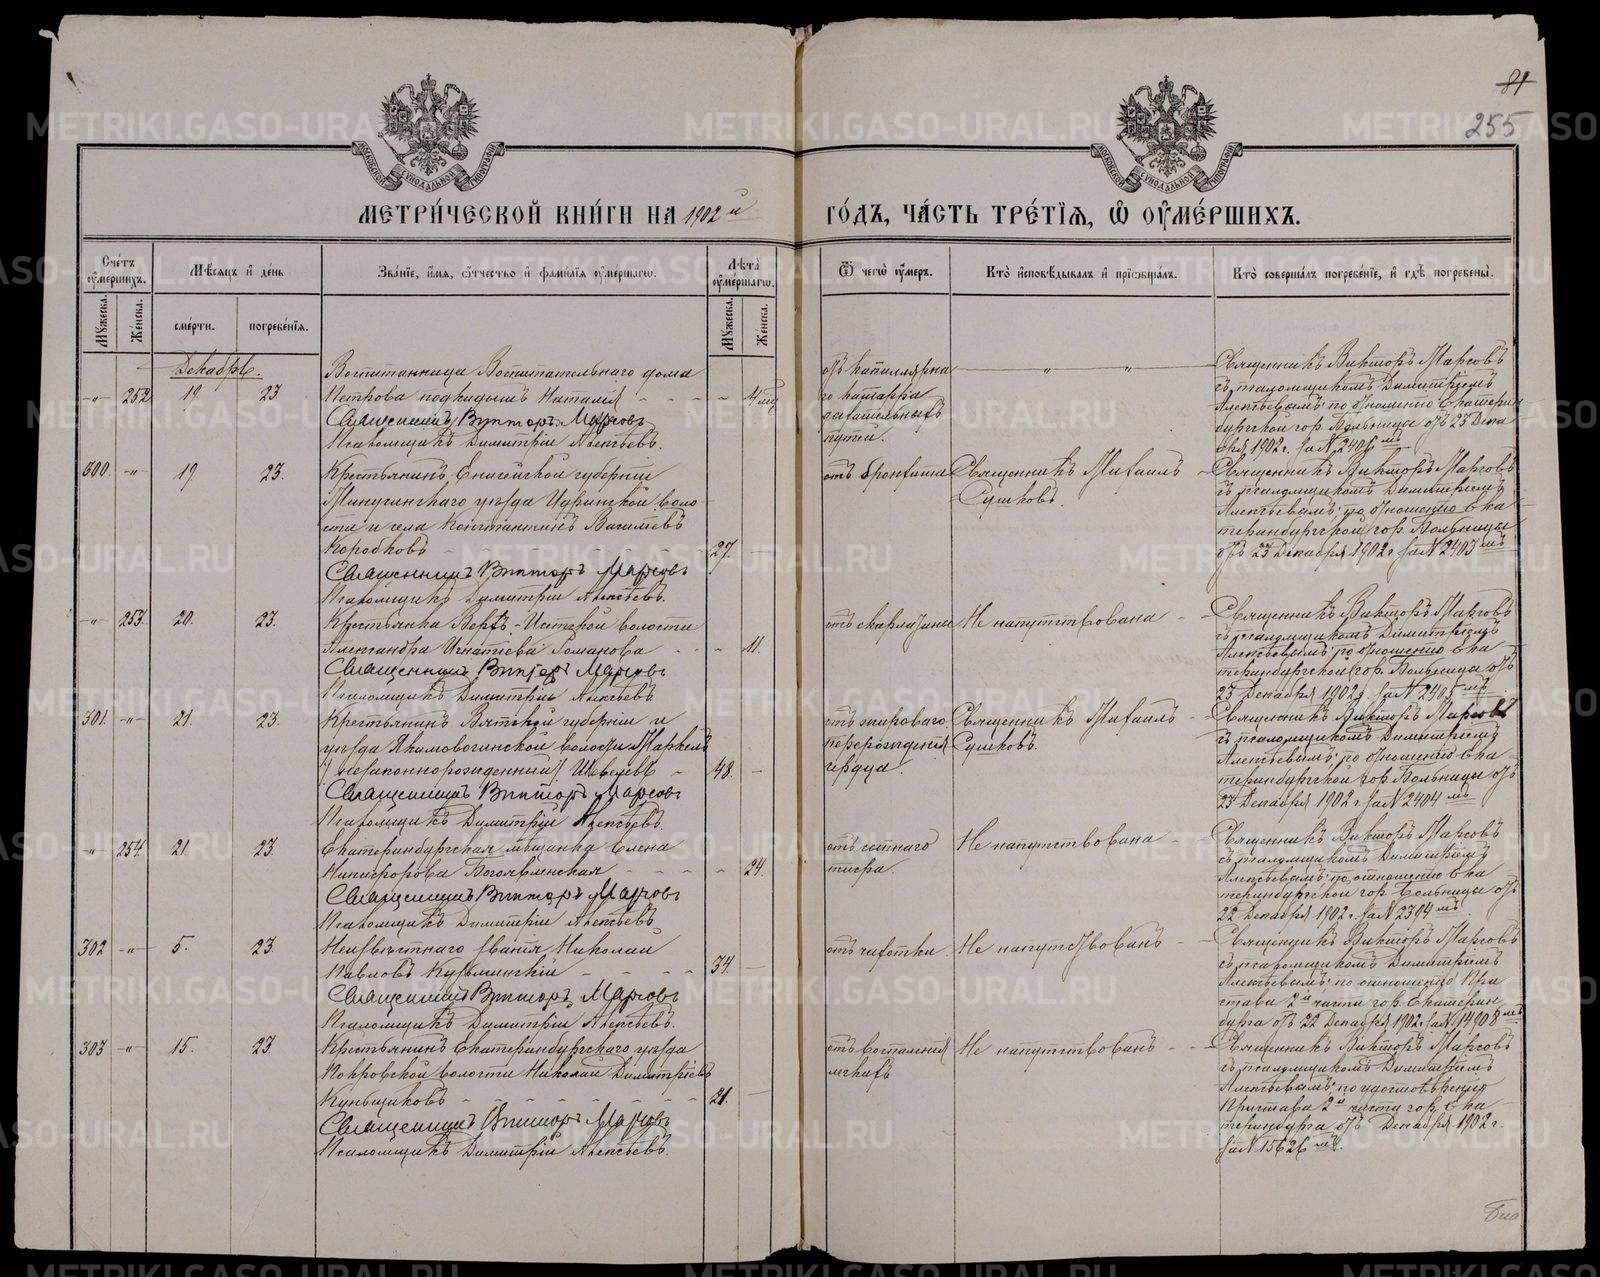 81
255
МЕТРИ́ЧЕСКОЙ КНИ́ГИ НА 1902 й ГО́ДЪ, ЧА́СТЬ ТРЕ́ТІѦ, Ѡ ОУМЕ́РШИХЪ.
Счётъ оумершихъ.
Мужеска.
Женска.
Мѣсяцъ и день
смерти.
погребенія.
Званіе, имя, отчество и фамилія оумершагѡ.
Лѣта оумершагѡ.
Мужеска.
Женска.
Ѿ чегѡ оумеръ.
Кто исповѣдывалъ и пріобщалъ.
Кто совершалъ погребеніе, и гдѣ погребены.
Декабрь.
-"- 252 19. 23.
Воспитанница Воспитательнаго дома
Петрова подкидышъ Наталія - - - - 4 мц
Священникъ Викторъ Марсовъ
Псаломщикъ Димитрій Алексѣевъ.
отъ капиллярна
го катарра
дыхательныхъ
путей.
Священникъ Викторъ Марсовъ
съ псаломщикомъ Димитріемъ
Алексѣевымъ; по отношенію Екатерин
бургской гор. Больницы отъ 23 Дека
бря 1902 г. за N 2406 мъ
300. -"- 19. 23.
Крестьянинъ Енисейской губерніи
Минусинскаго уѣзда Идринской воло
сти и села Константинъ Васильевъ
Коробковъ - - - 27. -
Священникъ Викторъ Марсовъ
Псаломщикъ Димитрій Алексѣевъ.
отъ бронхита
Священникъ Михаилъ
Сушковъ.
Священникъ Викторъ Марсовъ
съ псаломщикомъ Димитріемъ
Алексѣевымъ; по отношенію Ека
теринбургской гор. Больницы
отъ 23 Декабря 1902 г за N 2403 мъ
-"- 253. 20. 23.
Крестьянка Верхъ-Исетской волости
Александра Игнатіева Романова - - - 11.
Священникъ Викторъ Марсовъ
Псаломщикъ Димитрій Алексѣевъ
отъ скарлатины
Не напутствована - -
Священникъ Викторъ Марсовъ
съ псаломщикомъ Димитріемъ
Алексѣевымъ; по отношенію Ека
теринбургской гор. Больницы отъ
23 Декабря 1902 г. за N 2405 мъ
301. -"- 21. 23.
Крестьянинъ Вятской губерніи и
уѣзда Якимовагинской волости Маркелъ
/незаконнорожденный/ Шевелевъ - 48. -
Священникъ Викторъ Марсовъ
Псаломщикъ Димитрій Алексѣевъ.
отъ жироваго
перерожденія
сердца.
Священникъ Михаилъ
Сушковъ.
Священникъ Викторъ Марсовъ
съ псаломщикомъ Димитріемъ
Алексѣевымъ; по отношенію Ека
теринбургской гор. Больницы отъ
23 Декабря 1902 г. за N 2404 мъ
-"- 254. 21. 23.
Екатеринбургская мѣщанка Елена
Никифорова Богоявленская - - - - 24.
Священникъ Викторъ Марсовъ
Псаломщикъ Димитрій Алексѣевъ
отъ сыпнаго
тифа.
Не напутствована -
Священникъ Викторъ Марсовъ
съ псаломщикомъ Димитріемъ
Алексѣевымъ; по отношенію Ека
теринбургской гор. Больницы отъ
22 Декабря 1902 г. за N 2394 мъ.
302 -"- 5. 23.
Неизвѣстнаго званія Николай
Павловъ Кузьминскій - - - - 34. -
Священникъ Викторъ Марсовъ
Псаломщикъ Димитрій Алексѣевъ.
отъ чахотки.
Не напутствованъ - -
Священникъ Викторъ Марсовъ
съ псаломщикомъ Димитріемъ
Алексѣевымъ; по отношенію При
става 2й части гор. Екатерин
бурга отъ 22 Декабря 1902 г за N 14908 мъ
303 -"- 15. 23.
Крестьянинъ Екатеринбургскаго уѣзда
Покровской волости Николай Димитріевъ
Куньщиковъ - - - - - - 21. -
Священникъ Викторъ Марсовъ
Псаломщикъ Димитрій Алексѣевъ.
отъ воспаленія
легкихъ
Не напутствованъ - - -
Священникъ Викторъ Марсовъ
съ псаломщикомъ Димитріемъ
Алексѣевымъ; по удостовѣренію
Пристава 2й части гор. Ека
теринбурга отъ Декабря 1902 г.
за N 15626 мъ.